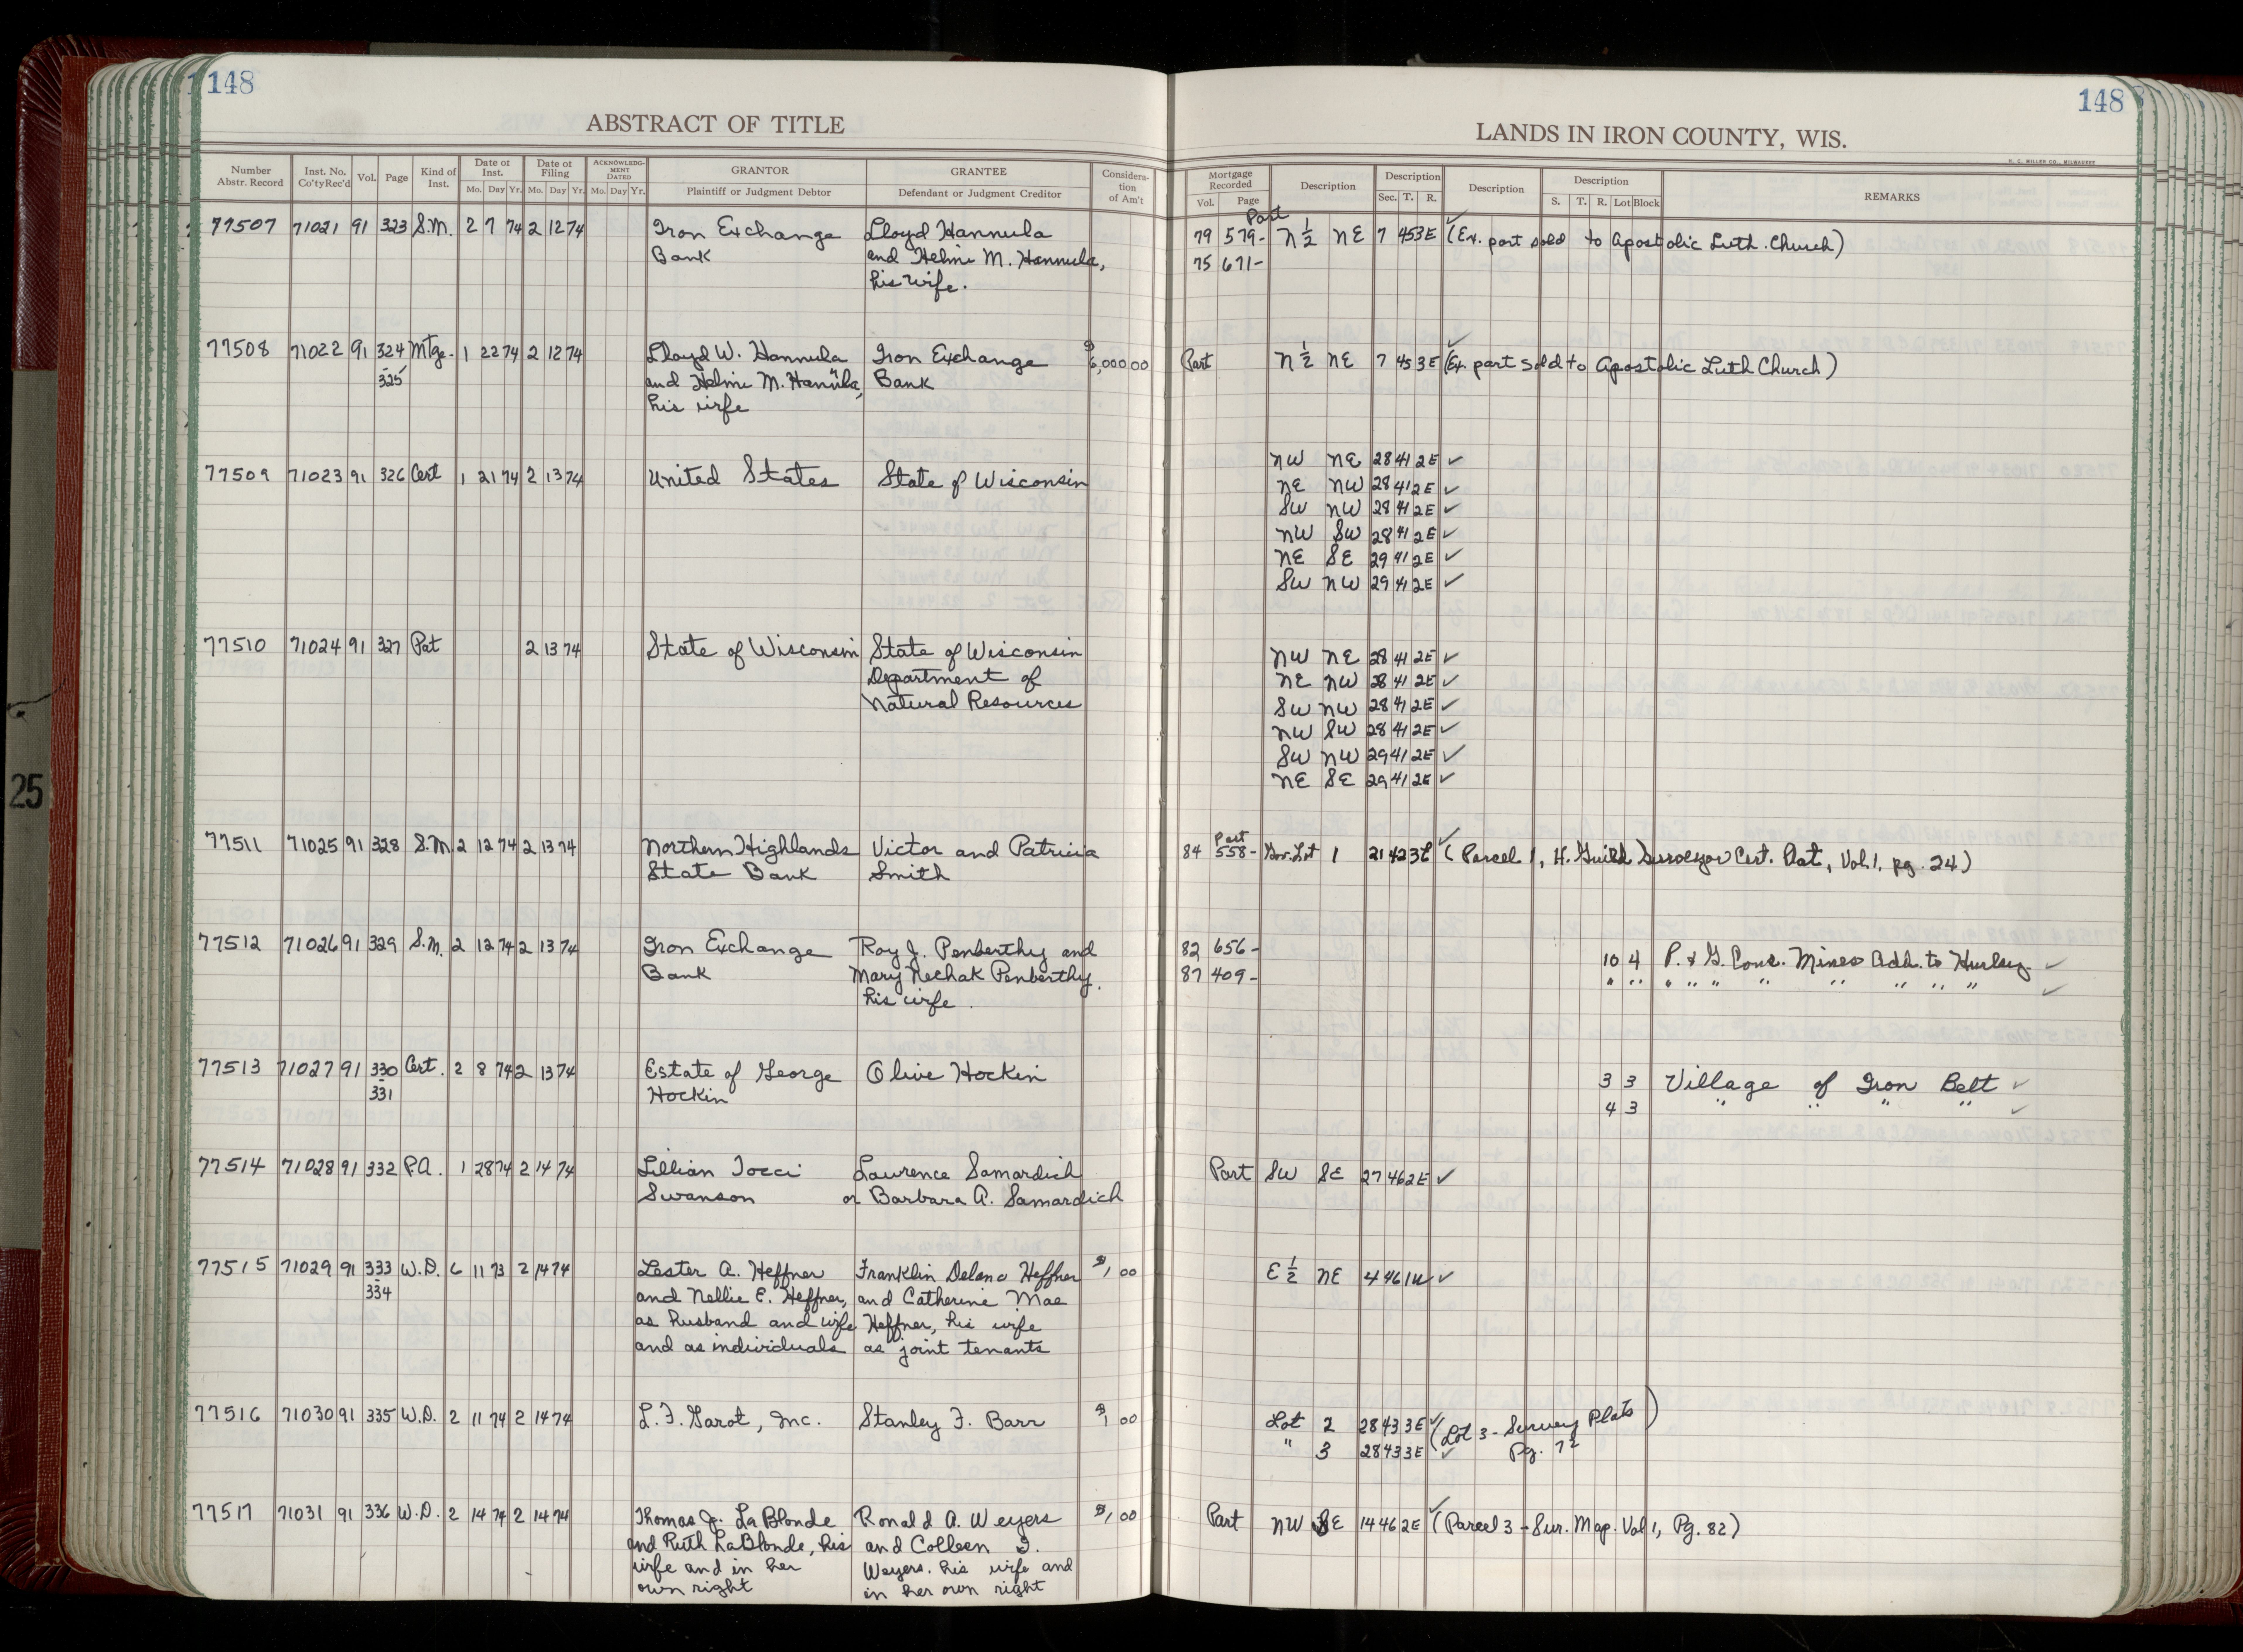 148
148
ABSTRACT OF TITLE
LANDS IN IRON COUNTY, WIS.
H. C. MILLER CO., MILWAUKEE
Number Abstr. Record
Inst. No. Co'ty Rec'd
Vol.
Page
Kind of Inst.
Date of Inst.
Mo. Day Yr.
Date of Filing
Mo. Day Yr.
ACKNOWLEDGMENT DATED
Mo. Day Yr.
GRANTOR
Plaintiff or Judgment Debtor
GRANTEE
Defendant or Judgment Creditor
Consideration of Am't
Mortgage Recorded
Vol. Page
Description
Description
Sec. T. R.
Description
Description
S. T. R. Lot Block
REMARKS
Part
77507 71021 91 323 S.M. 2 7 74 2 12 74 Iron Exchange Lloyd Hannula 79 579- N ½ NE 7 45 3E ✓ (Ex. part sold to Apostolic Luth. Church)
Bank and Helmi M. Hannula, 75 671-
his wife.
77508 71022 91 324 Mtge. 1 22 74 2 12 74 Lloyd W. Hannula Iron Exchange $6,000 00 Part N ½ NE 7 45 3E ✓ (Ex. part sold to Apostolic Luth Church)
325 and Helmi M. Hannula, Bank
his wife
NW NE 28 41 2E ✓
77509 71023 91 326 Cert 1 21 74 2 13 74 United States State of Wisconsin NE NW 28 41 2E ✓
SW NW 28 41 2E ✓
NW SW 28 41 2E ✓
NE SE 29 41 2E ✓
SW NW 29 41 2E ✓
77510 71024 91 327 Pat 2 13 74 State of Wisconsin State of Wisconsin NW NE 28 41 2E ✓
Department of NE NW 28 41 2E ✓
Natural Resources SW NW 28 41 2E ✓
NW SW 28 41 2E ✓
SW NW 29 41 2E ✓
NE SE 29 41 2E ✓
Part
77511 71025 91 328 S.M 2 12 74 2 13 74 Northern Highlands Victor and Patricia 84 558- Gov. Lot 1 21 42 3E ✓ (Parcel 1, H. Guild Surveyor Cert. Plat, Vol. 1, pg. 24)
State Bank Smith
77512 71026 91 329 S.M. 2 12 74 2 13 74 Iron Exchange Roy J. Penberthy and 82 656- 10 4 P. & G. Cons. Mines Add. to Hurley ✓
Bank Mary Nechak Penberthy, 87 409- " " " " " " " " " " ✓
his wife.
77513 71027 91 330 Cert. 2 8 74 2 13 74 Estate of George Olive Hockin 3 3 Village of Iron Belt ✓
331 Hockin 4 3 " " " " ✓
77514 71028 91 332 P.A. 1 28 74 2 14 74 Lillian Tocci Lawrence Samardich Part SW SE 27 46 2E ✓
Swanson or Barbara A. Samardich
77515 71029 91 333 W.D. 6 11 73 2 14 74 Lester A. Heffner Franklin Delano Heffner $1 00 E ½ NE 4 46 1W ✓
334 and Nellie E. Heffner, and Catherine Mae
as husband and wife Heffner, his wife
and as individuals as joint tenants
77516 71030 91 335 W.D. 2 11 74 2 14 74 L. F. Garot, Inc. Stanley F. Barr $1 00 Lot 2 28 43 3E ✓ (Lot 3 - Survey Plats)
" 3 28 43 3E ✓ Pg. 72
77517 71031 91 336 W.D. 2 14 74 2 14 74 Thomas J. LaBlonde Ronald A. Weyers $1 00 Part NW SE 14 46 2E ✓ (Parcel 3 - Sur. Map. Vol 1, Pg. 82)
and Ruth LaBlonde, his and Colleen J.
wife and in her Weyers, his wife and
own right in her own right
25